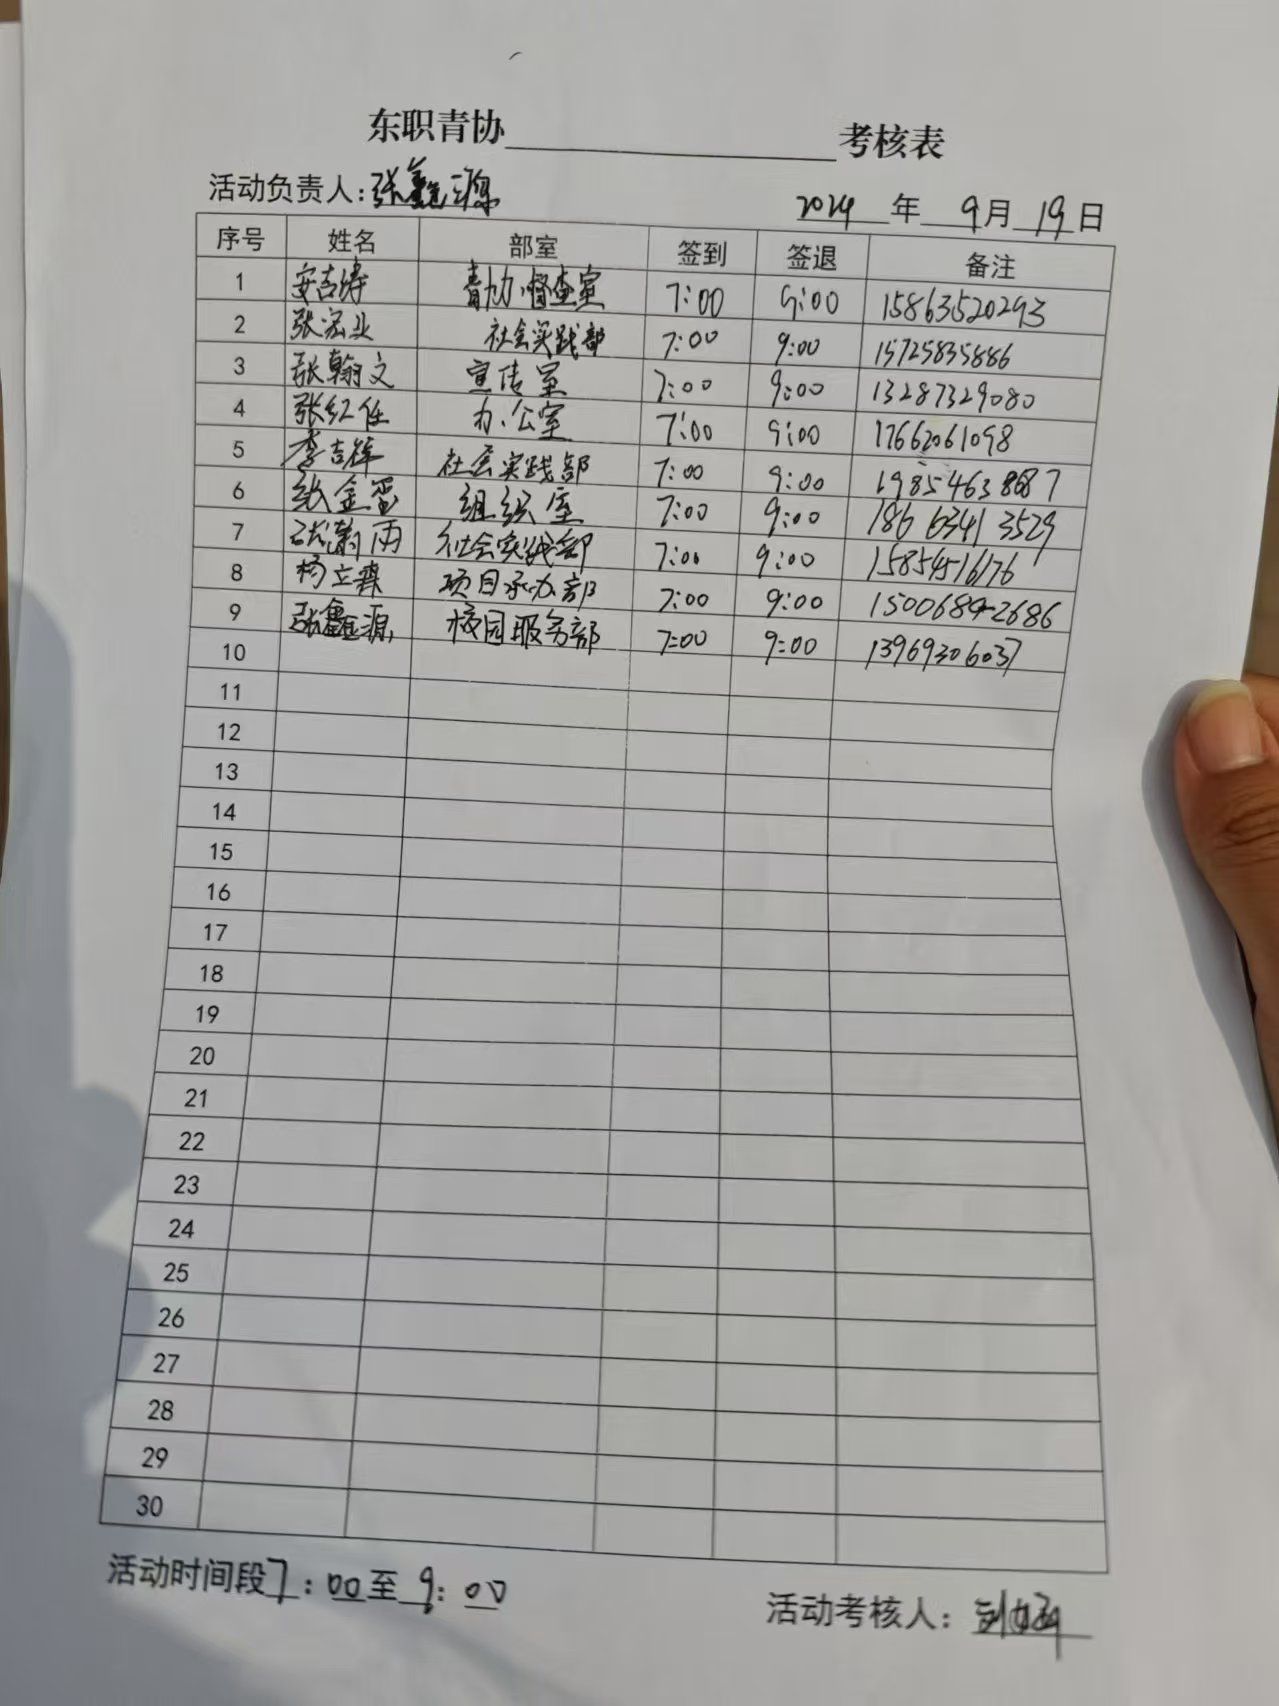 东职青协____________考核表
活动负责人：张鑫源 2024年 9月 19日
序号 姓名 部室 签到 签退 备注
1 安吉涛 青协·督查室 7:00 9:00 15863520293
2 张宏业 社会实践部 7:00 9:00 15725835886
3 张翰文 宣传室 7:00 9:00 13287329080
4 张红任 办公室 7:00 9:00 17662061098
5 李吉祥 社会实践部 7:00 9:00 19854638687
6 张金 组织室 7:00 9:00 186 6341 3529
7 张潇雨 社会实践部 7:00 9:00 15854516176
8 杨立森 项目承办部 7:00 9:00 15006842686
9 张鑫源 校园服务部 7:00 9:00 13969306037
10
11
12
13
14
15
16
17
18
19
20
21
22
23
24
25
26
27
28
29
30
活动时间段7:00至9:00 活动考核人：